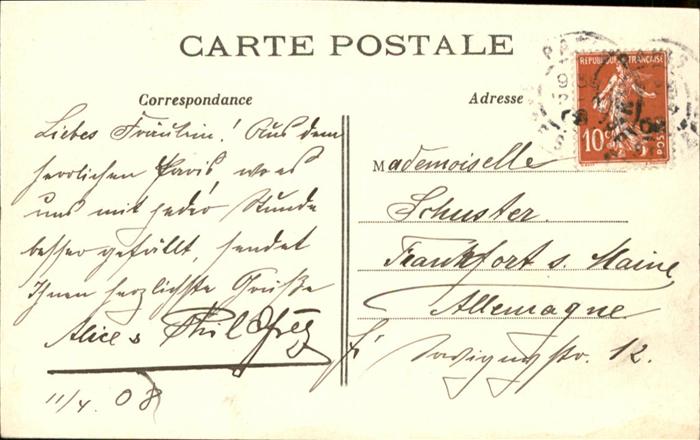 CARTE POSTALE
Correspondance
Liebes Fräulein! Aus dem
herrlichen Paris, wo es
uns mit jeder Stunde
besser gefällt, sendet
Ihnen herzlichste Grüße
Alice & Phil
11/4. 08
Adresse
Mademoiselle
Schuster.
Frankfort s. Maine
Allemagne
Savignystr. 12.
REPUBLIQUE FRANÇAISE
10c
POSTES
PARIS